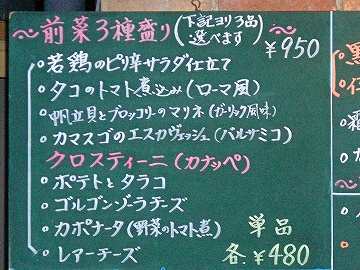 ～前菜3種盛り(下記ヨリ3品選べます)～ ¥950
○若鶏のピリ辛サラダ仕立て
○タコのトマト煮込み(ローマ風)
○帆立貝とブロッコリーのマリネ(ガーリック風味)
○カマスゴのエスカヴェッシュ(バルサミコ)
クロスティーニ(カナッペ)
○ポテトとタラコ
○ゴルゴンゾーラチーズ
○カポナータ(野菜のトマト煮)
○レアーチーズ
単品
各¥480